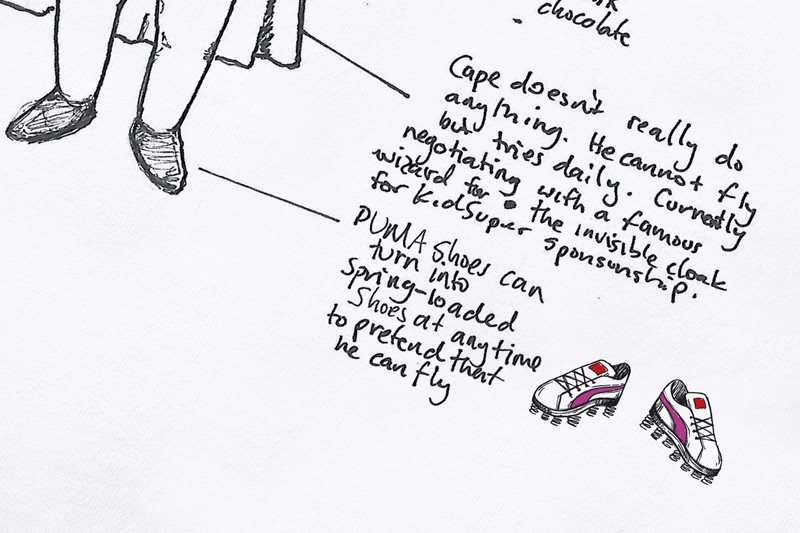 chocolate
Cape doesn't really do
anything. He cannot fly
but tries daily. Currently
negotiating with a famous
wizard for the invisible cloak
for KidSuper sponsorship.
PUMA Shoes can
turn into
Spring-loaded
Shoes at anytime
to pretend that
he can fly